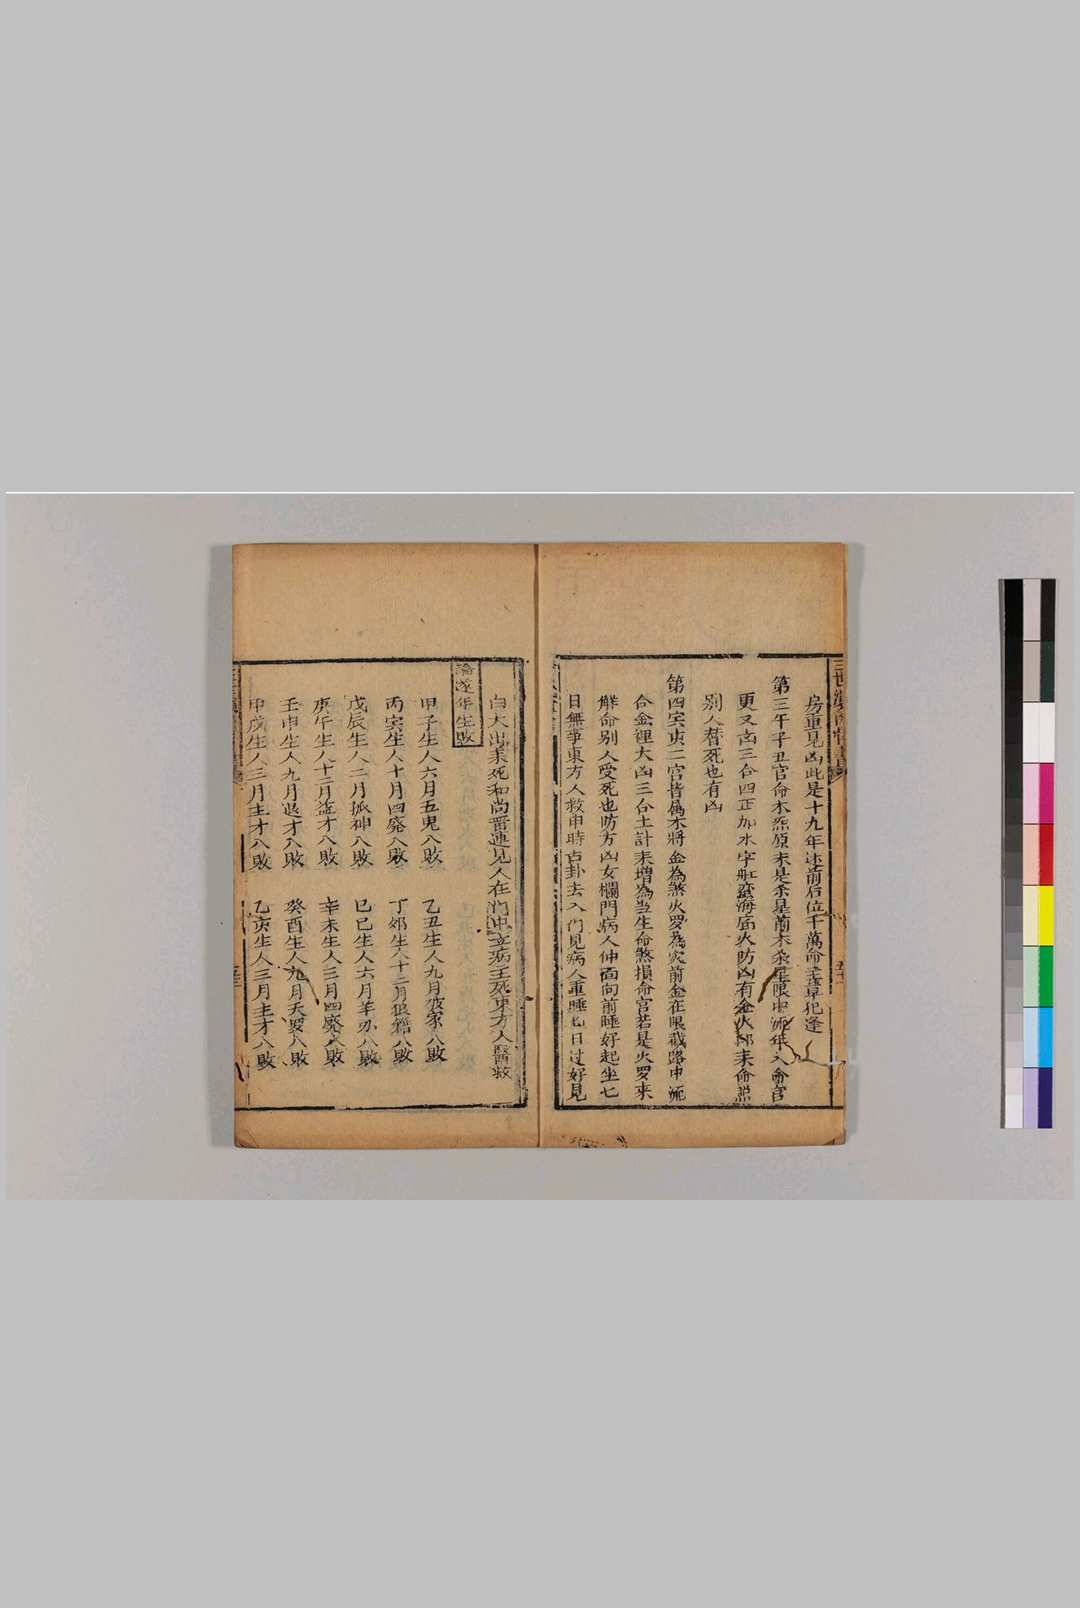 房重見凶此是十九年逑前后位千萬命主䓁犯逢
第三午子丑官命木炁原來是杀是前木杀星眼中流年入命宫
更又凶三合四正加水孛躔蛮海廟火防凶有金火郎來命㷊
别人替死也有凶
第四寅亥二宫皆属木將金為煞火罗為灾前金在眼戳路中流
合金裡大凶三合土計來增為当生命煞損命宫若是火罗來
觧命别人受死也防方凶女欄門病人伸面向前睡好起坐七
日無事東方人救申時占卦去入们見病人重睡七日过好見
白犬出來死和尚晋連見人在们中立病主死東方人醫救
論逐年生敗
甲子生人六月五鬼八敗 乙丑生人九月破家八敗
丙寅生人十月四廢八敗 丁卯生人十二月狼籍八敗
戊辰生人二月孤神八敗 巳巳生人六月羊刃八敗
庚午生人十二月盗才八敗 辛未生人三月四廢八敗
壬申生人九月退才八敗 癸酉生人九月天罗八敗
甲戌生人三月主才八敗 乙亥生人三月主才八敗